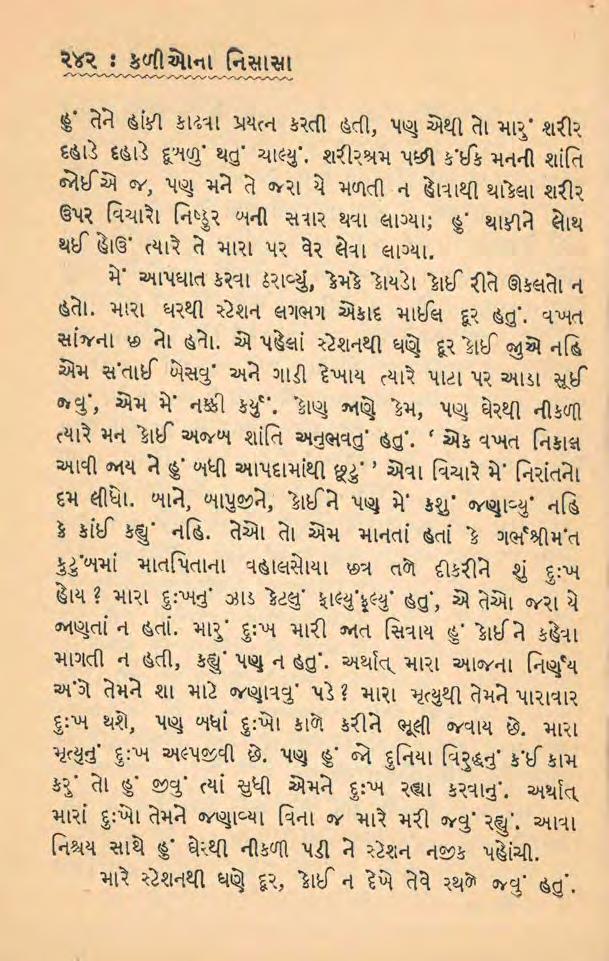 ૨૪૨ : કળીઓના નિસાસા
હું તેને હાંકી કાઢવા પ્રયત્ન કરતી હતી, પણ એથી તો મારું શરીર
દહાડે દહાડે દૂબળું થતું ચાલ્યું. શરીરશ્રમ પછી કંઈક મનની શાંતિ
જોઈએ જ, પણ મને તે જરા યે મળતી ન હોવાથી થાકેલા શરીર
ઉપર વિચારો નિષ્ઠુર બની સવાર થવા લાગ્યા; હું થાકીને લોથ
થઈ હોઉં ત્યારે તે મારા પર વેર લેવા લાગ્યા.
મેં આપઘાત કરવા ઠરાવ્યું, કેમકે કોયડો કોઈ રીતે ઊકલતો ન
હતો. મારા ઘરથી સ્ટેશન લગભગ એકાદ માઈલ દૂર હતું. વખત
સાંજના છ નો હતો. એ પહેલાં સ્ટેશનથી ઘણે દૂર કોઈ જુએ નહિ
એમ સંતાઈ બેસવું અને ગાડી દેખાય ત્યારે પાટા પર આડા સૂઈ
જવું, એમ મેં નક્કી કર્યું. કોણ જાણે કેમ, પણ ઘેરથી નીકળી
ત્યારે મન કોઈ અજબ શાંતિ અનુભવતું હતું. ‘ એક વખત નિકાલ
આવી જાય ને હું બધી આપદામાંથી છૂટું ’ એવા વિચારે મેં નિરાંતનો
દમ લીધો. બાને, બાપુજીને, કોઈને પણ મેં કશું જણાવ્યું નહિ
કે કાંઈ કહ્યું નહિ. તેઓ તો એમ માનતાં હતાં કે ગર્ભશ્રીમંત
કુટુંબમાં માતપિતાના વહાલસોયા છત્ર તળે દીકરીને શું દુઃખ
હોય ? મારા દુઃખનું ઝાડ કેટલું ફાલ્યુંફૂલ્યું હતું, એ તેઓ જરા યે
જાણતાં ન હતાં. મારું દુઃખ મારી જાત સિવાય હું કોઈને કહેવા
માગતી ન હતી, કહ્યું પણ ન હતું. અર્થાત્ મારા આજના નિર્ણય
અંગે તેમને શા માટે જણાવવું પડે ? મારા મૃત્યુથી તેમને પારાવાર
દુઃખ થશે, પણ બધાં દુઃખો કાળે કરીને ભૂલી જવાય છે. મારા
મૃત્યુનું દુઃખ અલ્પજીવી છે. પણ હું જો દુનિયા વિરુદ્ધનું કંઈ કામ
કરું તો હું જીવું ત્યાં સુધી એમને દુઃખ રહ્યા કરવાનું. અર્થાત્
મારાં દુઃખો તેમને જણાવ્યા વિના જ મારે મરી જવું રહ્યું. આવા
નિશ્ચય સાથે હું ઘેરથી નીકળી પડી ને સ્ટેશન નજીક પહોંચી.
મારે સ્ટેશનથી ઘણે દૂર, કોઈ ન દેખે તેવે સ્થળે જવું હતું.